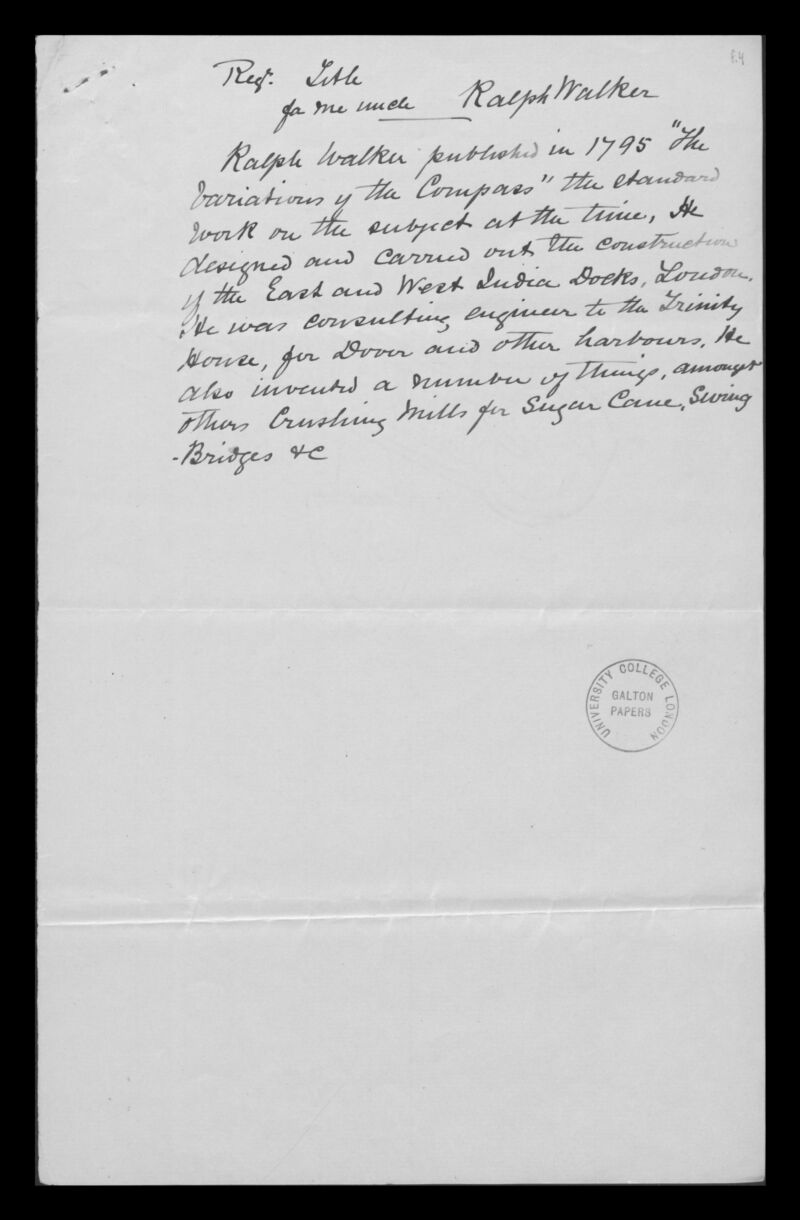 f.4
Regr. Title
fa me uncle Ralph Walker
Ralph Walker published in 1795 "The
Variations of the Compass" the standard
work on the subject at the time, He
designed and carried out the construction
of the East and West India Docks, London.
He was consulting engineer to the Trinity
House, for Dover and other harbours, He
also invented a number of things, amongst
others Crushing Mills for Sugar Cane, Swing
-Bridges &c
UNIVERSITY COLLEGE LONDON
GALTON
PAPERS